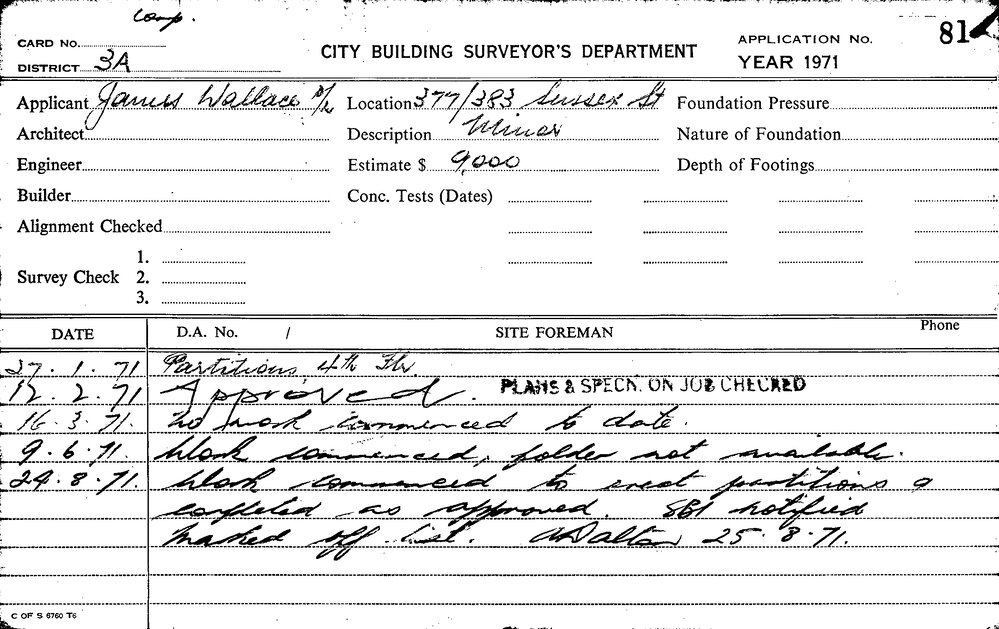 Comp.
CARD No.
DISTRICT 3A
CITY BUILDING SURVEYOR'S DEPARTMENT
APPLICATION No. 81
YEAR 1971
Applicant James Wallace P/L Location 377/383 Sussex St Foundation Pressure
Architect Description Minor Nature of Foundation
Engineer Estimate $ 9,000 Depth of Footings
Builder Conc. Tests (Dates)
Alignment Checked
Survey Check 1.
2.
3.
DATE D.A. No. / SITE FOREMAN Phone
27.1.71 Partitions 4th Flr.
12.2.71 Approved. PLANS & SPECN. ON JOB CHECKED
16.3.71. no work commenced to date.
9.6.71. Work commenced, folder not available.
24.8.71. Work commenced to erect partitions &
completed as approved. notified
marked off list. ADalton 25.8.71.
C OF S 6760 T6